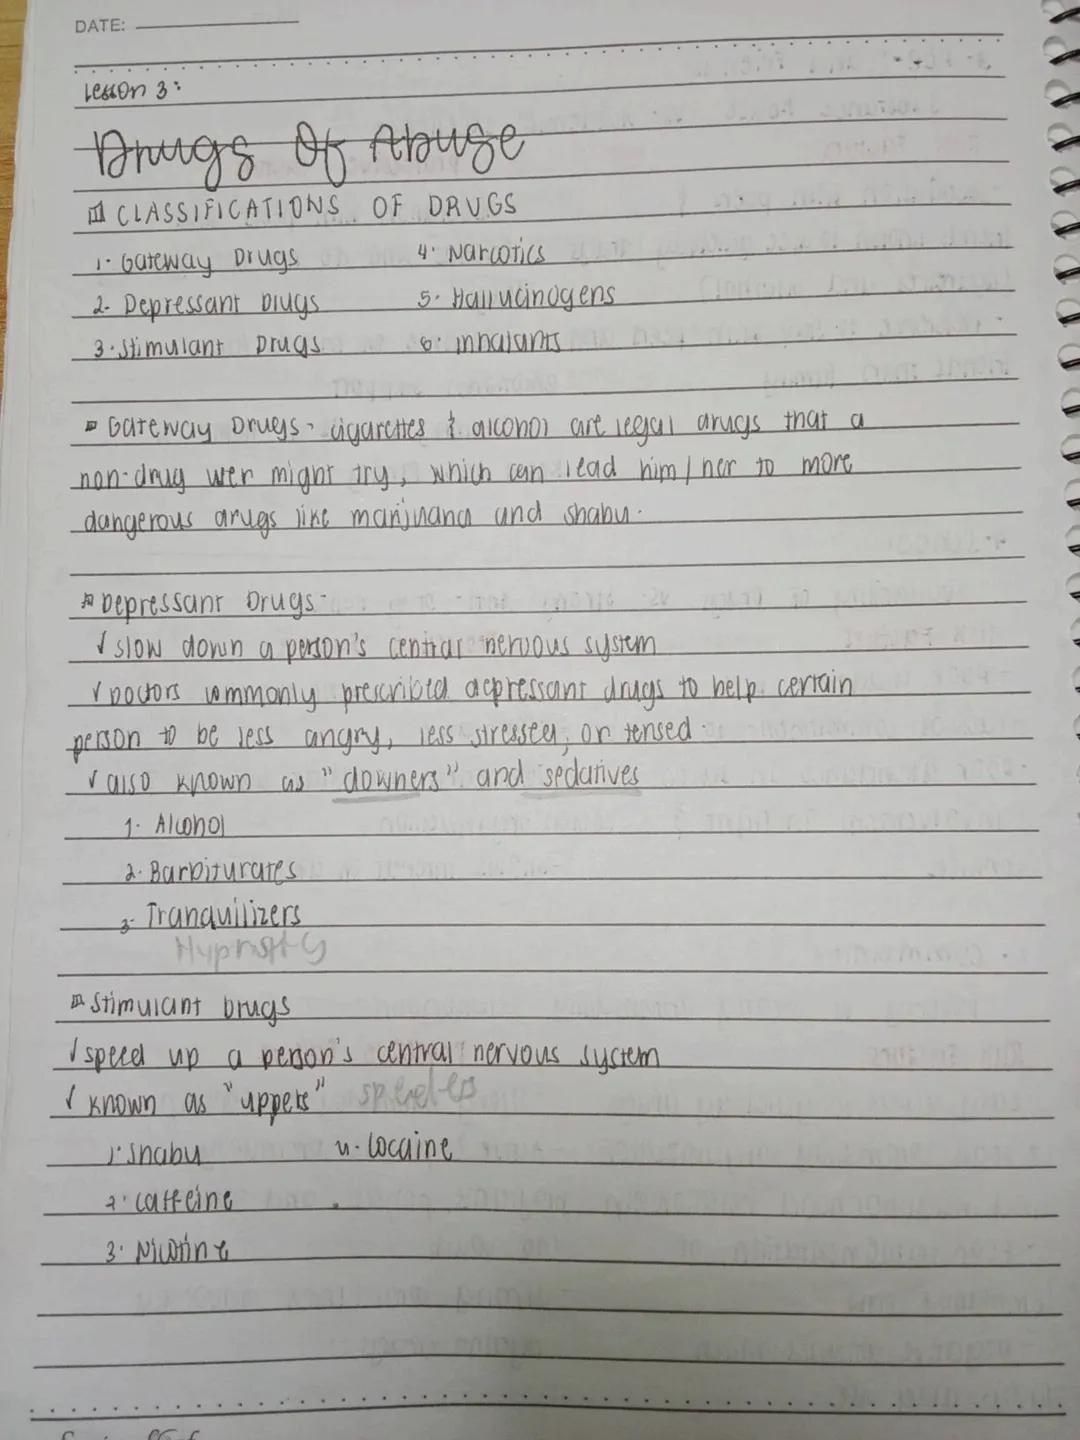 DATE:
Lesson 3:
Drugs Of Abuse
CLASSIFICATIONS OF DRUGS
1. Gateway Drugs 4. Narcotics
2. Depressant Drugs 5. Hallucinogens
3. Stimulant Drugs 6. inhalants
Gateway Drugs - cigarettes & alcohol are legal drugs that a
non-drug user might try, which can lead him/her to more
dangerous drugs like marijuana and shabu.
Depressant Drugs -
✓ slow down a person's central nervous system
✓ Doctors commonly prescribed depressant drugs to help certain
person to be less angry, less stressed, or tensed.
✓ also known as "downers" and sedatives
1. Alcohol
2. Barbiturates
3. Tranquilizers
Stimulant Drugs
✓ speed up a person's central nervous system
✓ known as "uppers"
1. Shabu 4. Cocaine
2. Caffeine
3. Nicotine